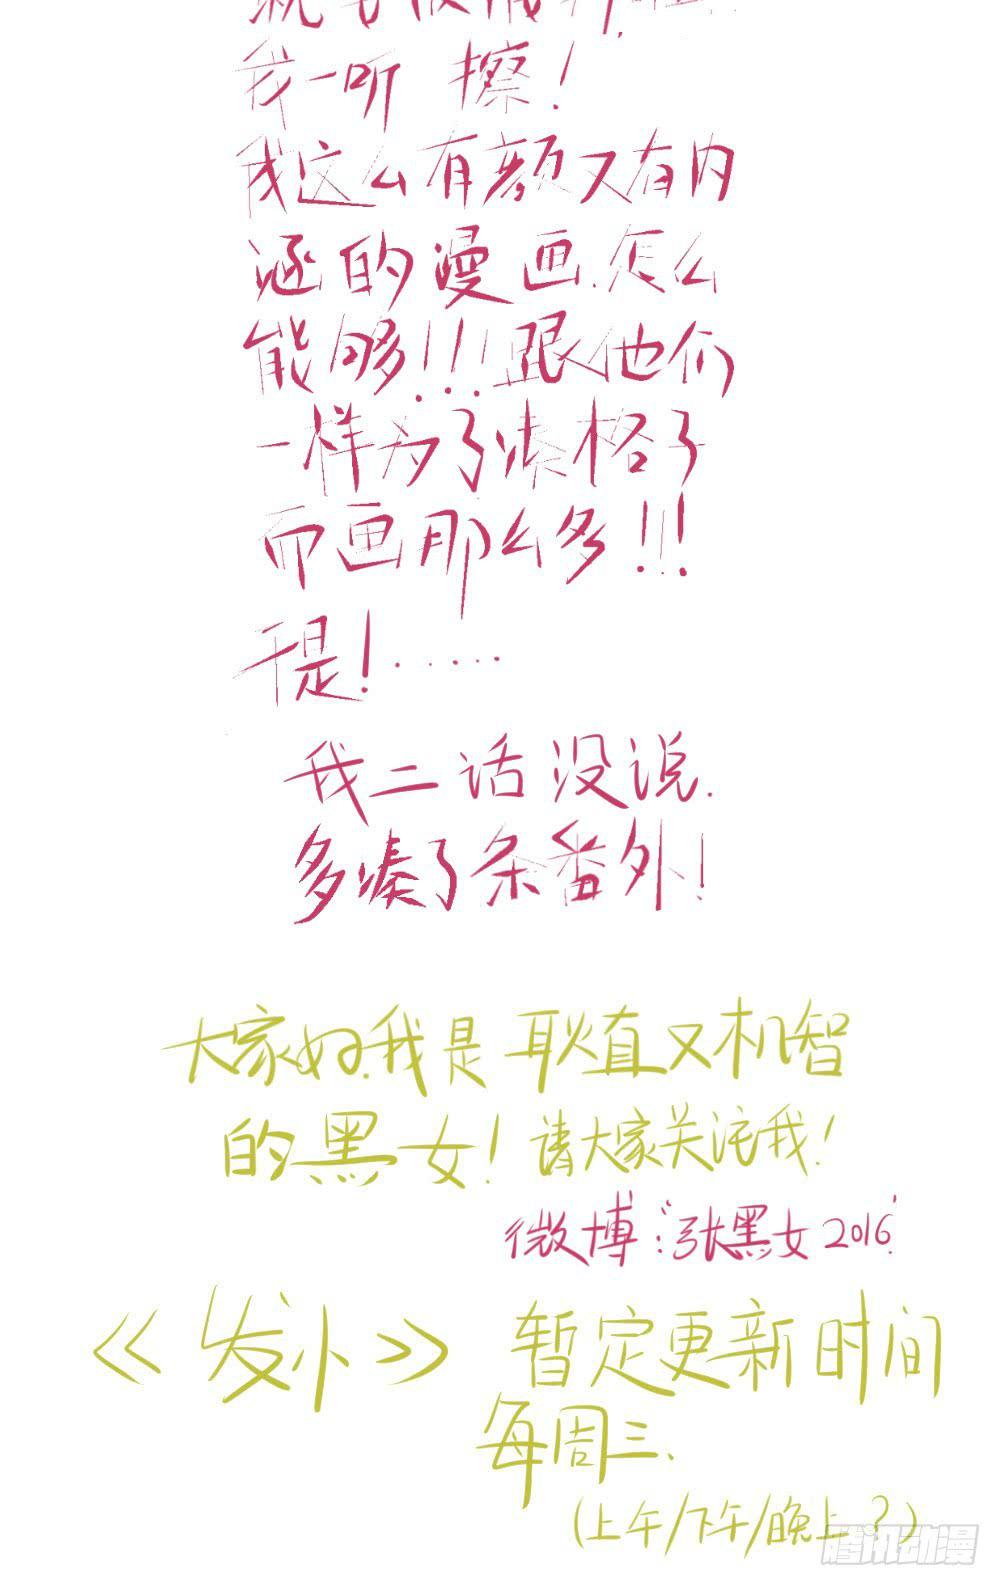 我一听 擦!
我这么有颜又有内
涵的漫画.怎么
能够!!!跟他们
一样为了凑格子
而画那么多!!!
于是!······
我二话没说.
多凑了条番外!
大家好.我是耿直又机智
的黑女!请大家关注我!
微博:“张黑女2016”
《发小》暂定更新时间
每周三.
(上午/下午/晚上?)
腾讯动漫